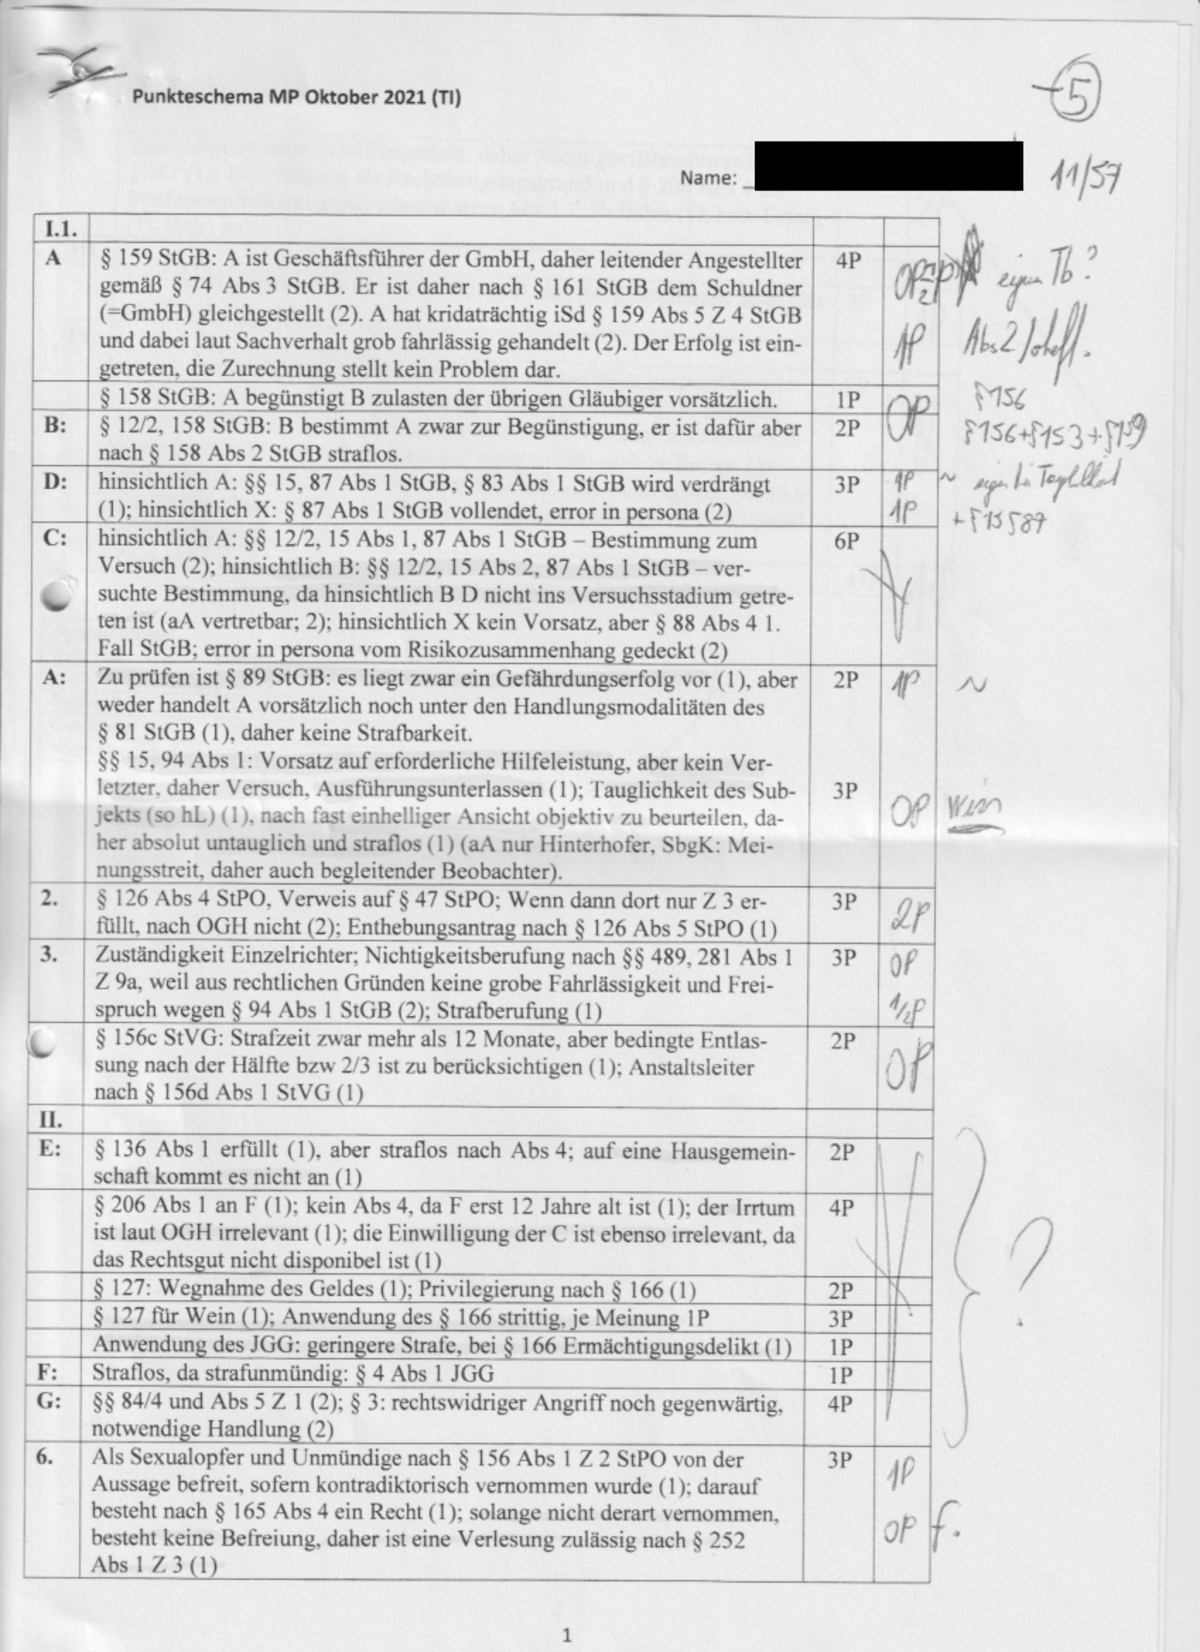 Punkteschema MP Oktober 2021 (TI)
5
Name: _
11/57
I.1.
A § 159 StGB: A ist Geschäftsführer der GmbH, daher leitender Angestellter 4P
gemäß § 74 Abs 3 StGB. Er ist daher nach § 161 StGB dem Schuldner 0P eigen Tb?
(=GmbH) gleichgestellt (2). A hat kridaträchtig iSd § 159 Abs 5 Z 4 StGB
und dabei laut Sachverhalt grob fahrlässig gehandelt (2). Der Erfolg ist ein- 1P Abs 2/
getreten, die Zurechnung stellt kein Problem dar.
§ 158 StGB: A begünstigt B zulasten der übrigen Gläubiger vorsätzlich. 1P 0P § 156
B: § 12/2, 158 StGB: B bestimmt A zwar zur Begünstigung, er ist dafür aber 2P § 156 + § 153 + § 159
nach § 158 Abs 2 StGB straflos.
D: hinsichtlich A: §§ 15, 87 Abs 1 StGB, § 83 Abs 1 StGB wird verdrängt 3P 1P ~
(1); hinsichtlich X: § 87 Abs 1 StGB vollendet, error in persona (2) 1P + § 15 § 87
C: hinsichtlich A: §§ 12/2, 15 Abs 1, 87 Abs 1 StGB – Bestimmung zum 6P
Versuch (2); hinsichtlich B: §§ 12/2, 15 Abs 2, 87 Abs 1 StGB – ver-
suchte Bestimmung, da hinsichtlich B D nicht ins Versuchsstadium getre-
ten ist (aA vertretbar; 2); hinsichtlich X kein Vorsatz, aber § 88 Abs 4 1.
Fall StGB; error in persona vom Risikozusammenhang gedeckt (2)
A: Zu prüfen ist § 89 StGB: es liegt zwar ein Gefährdungserfolg vor (1), aber 2P 1P ~
weder handelt A vorsätzlich noch unter den Handlungsmodalitäten des
§ 81 StGB (1), daher keine Strafbarkeit.
§§ 15, 94 Abs 1: Vorsatz auf erforderliche Hilfeleistung, aber kein Ver-
letzter, daher Versuch, Ausführungsunterlassen (1); Tauglichkeit des Sub- 3P 0P
jekts (so hL) (1), nach fast einhelliger Ansicht objektiv zu beurteilen, da-
her absolut untauglich und straflos (1) (aA nur Hinterhofer, SbgK: Mei-
nungsstreit, daher auch begleitender Beobachter).
2. § 126 Abs 4 StPO, Verweis auf § 47 StPO; Wenn dann dort nur Z 3 er- 3P 2P
füllt, nach OGH nicht (2); Enthebungsantrag nach § 126 Abs 5 StPO (1)
3. Zuständigkeit Einzelrichter; Nichtigkeitsberufung nach §§ 489, 281 Abs 1 3P 0P
Z 9a, weil aus rechtlichen Gründen keine grobe Fahrlässigkeit und Frei-
spruch wegen § 94 Abs 1 StGB (2); Strafberufung (1) 1/2P
§ 156c StVG: Strafzeit zwar mehr als 12 Monate, aber bedingte Entlas- 2P
sung nach der Hälfte bzw 2/3 ist zu berücksichtigen (1); Anstaltsleiter 0P
nach § 156d Abs 1 StVG (1)
II.
E: § 136 Abs 1 erfüllt (1), aber straflos nach Abs 4; auf eine Hausgemein- 2P
schaft kommt es nicht an (1)
§ 206 Abs 1 an F (1); kein Abs 4, da F erst 12 Jahre alt ist (1); der Irrtum 4P
ist laut OGH irrelevant (1); die Einwilligung der C ist ebenso irrelevant, da ?
das Rechtsgut nicht disponibel ist (1)
§ 127: Wegnahme des Geldes (1); Privilegierung nach § 166 (1) 2P
§ 127 für Wein (1); Anwendung des § 166 strittig, je Meinung 1P 3P
Anwendung des JGG: geringere Strafe, bei § 166 Ermächtigungsdelikt (1) 1P
F: Straflos, da strafunmündig: § 4 Abs 1 JGG 1P
G: §§ 84/4 und Abs 5 Z 1 (2); § 3: rechtswidriger Angriff noch gegenwärtig, 4P
notwendige Handlung (2)
6. Als Sexualopfer und Unmündige nach § 156 Abs 1 Z 2 StPO von der 3P 1P
Aussage befreit, sofern kontradiktorisch vernommen wurde (1); darauf
besteht nach § 165 Abs 4 ein Recht (1); solange nicht derart vernommen,
besteht keine Befreiung, daher ist eine Verlesung zulässig nach § 252 0P f.
Abs 1 Z 3 (1)
1